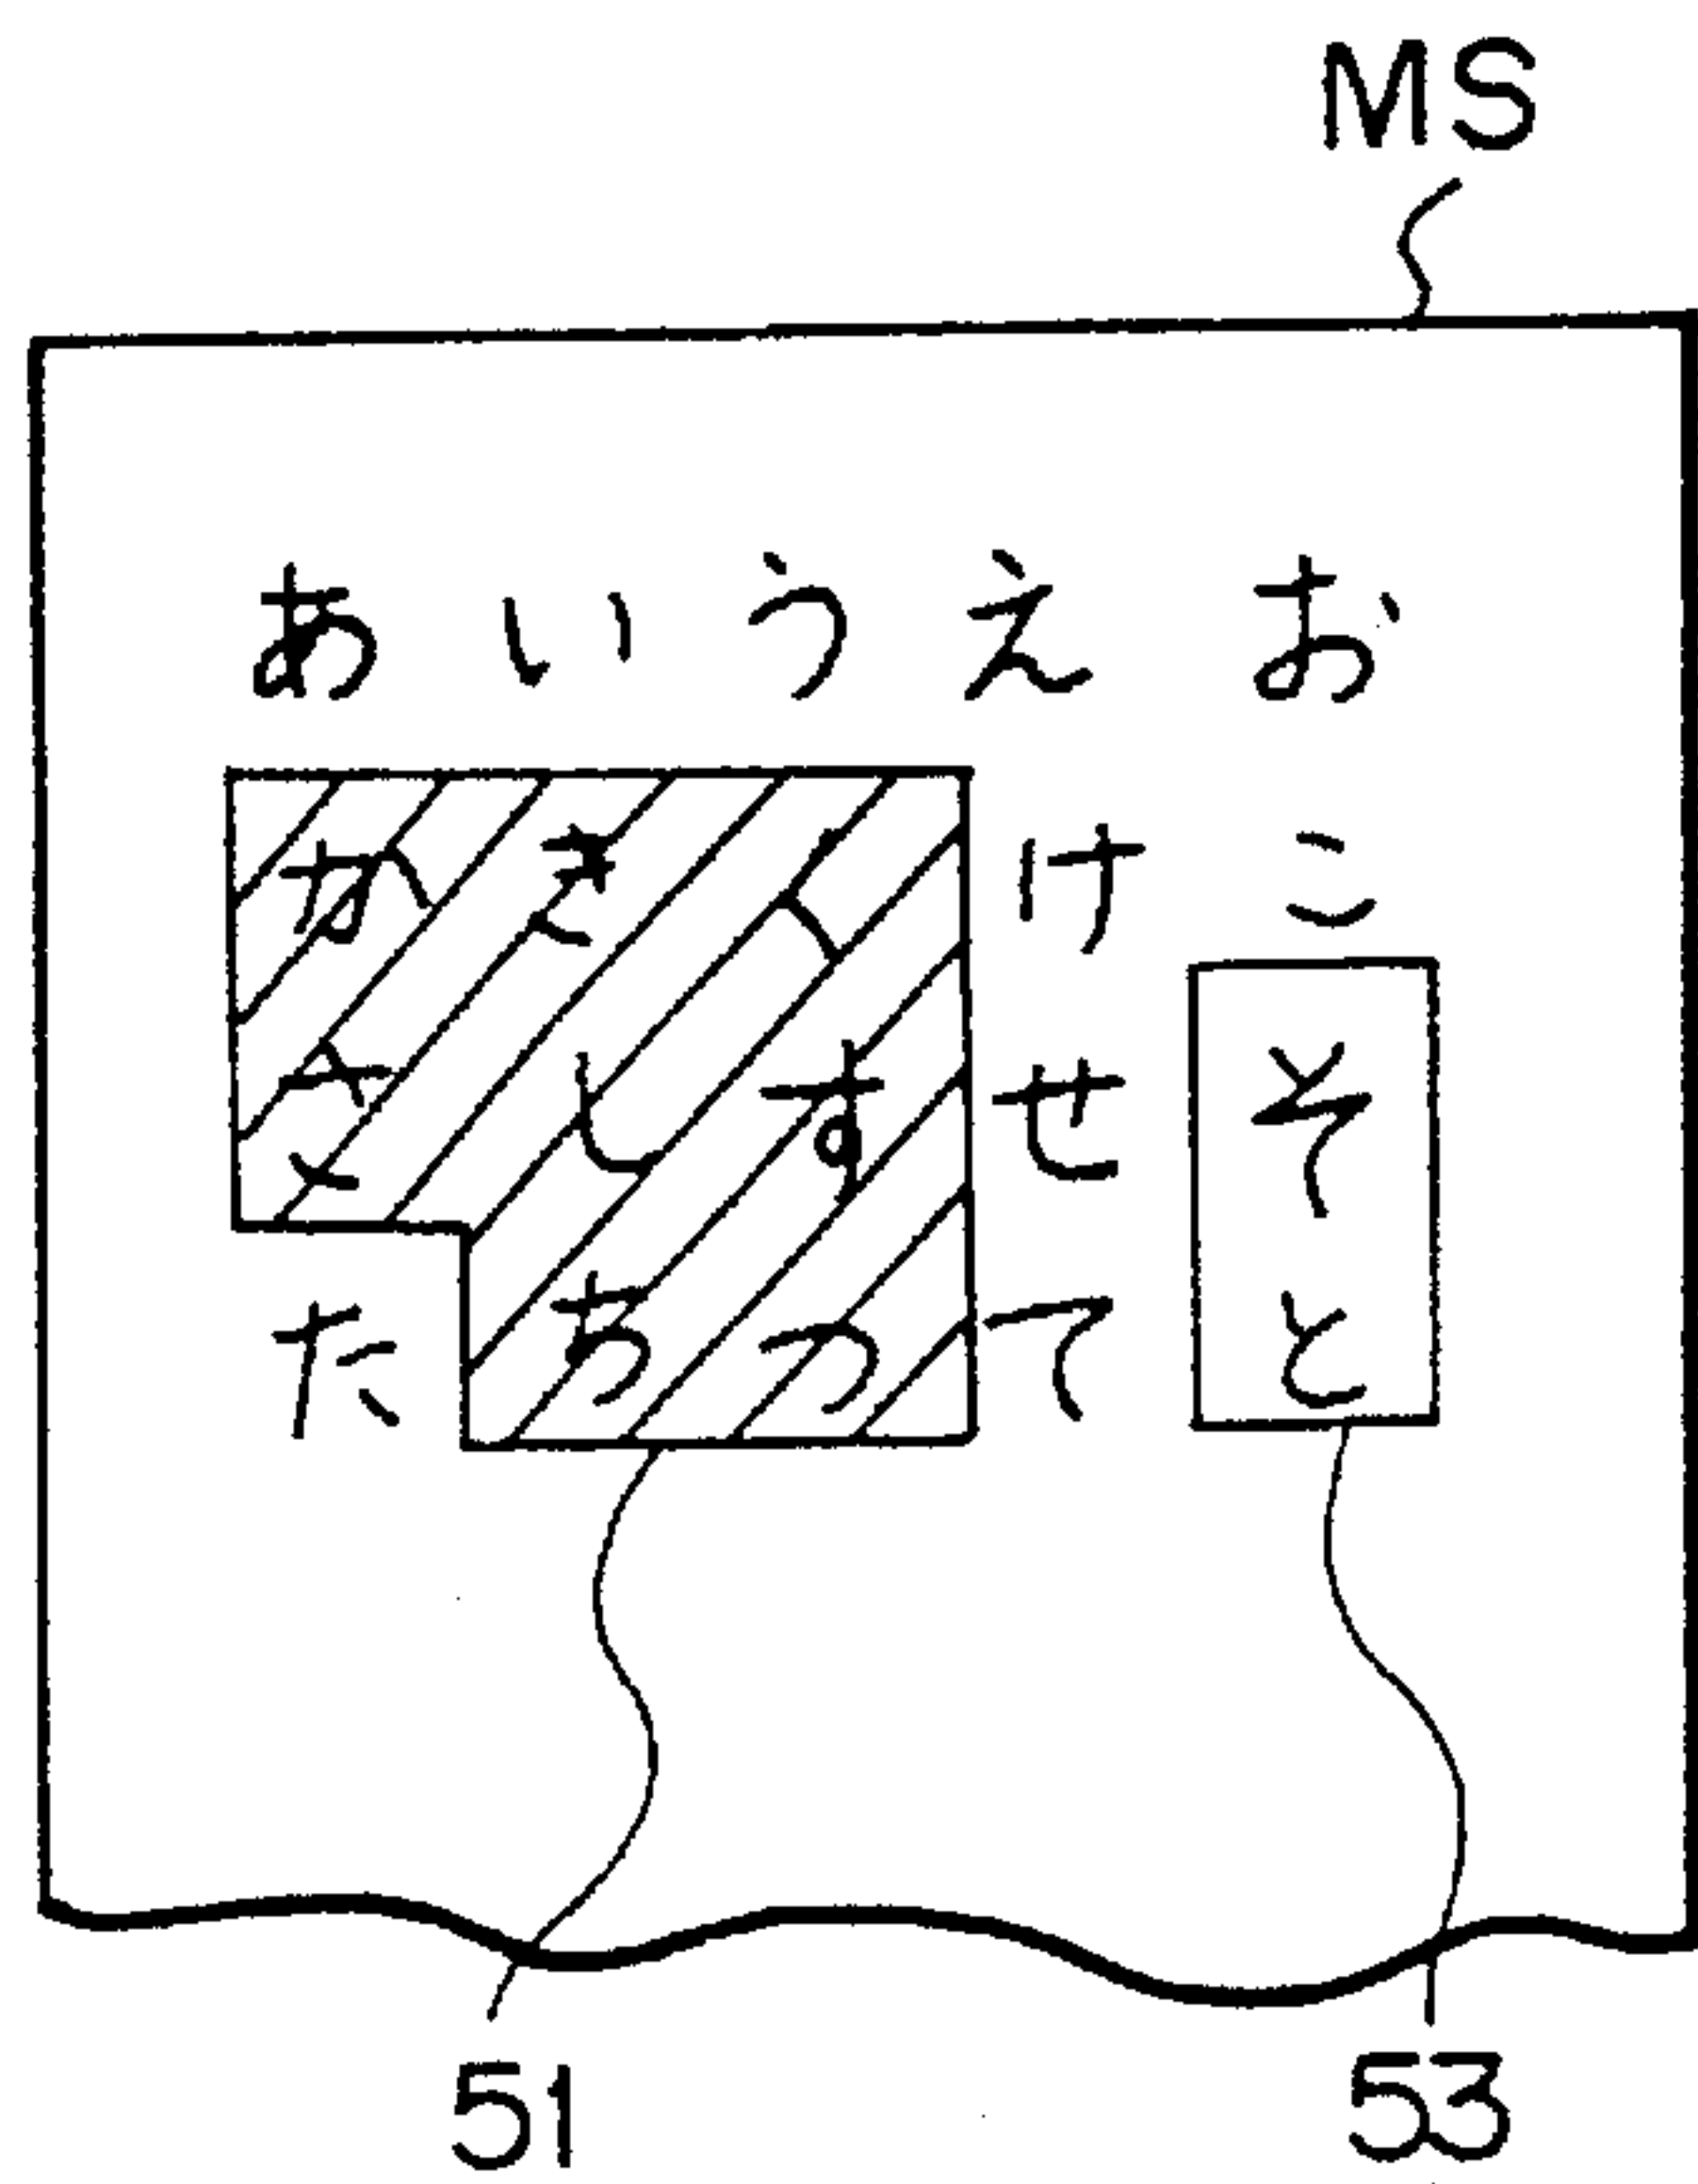 MS
あいうえお
かきくけこ
さしすせそ
たちつてと
51 53